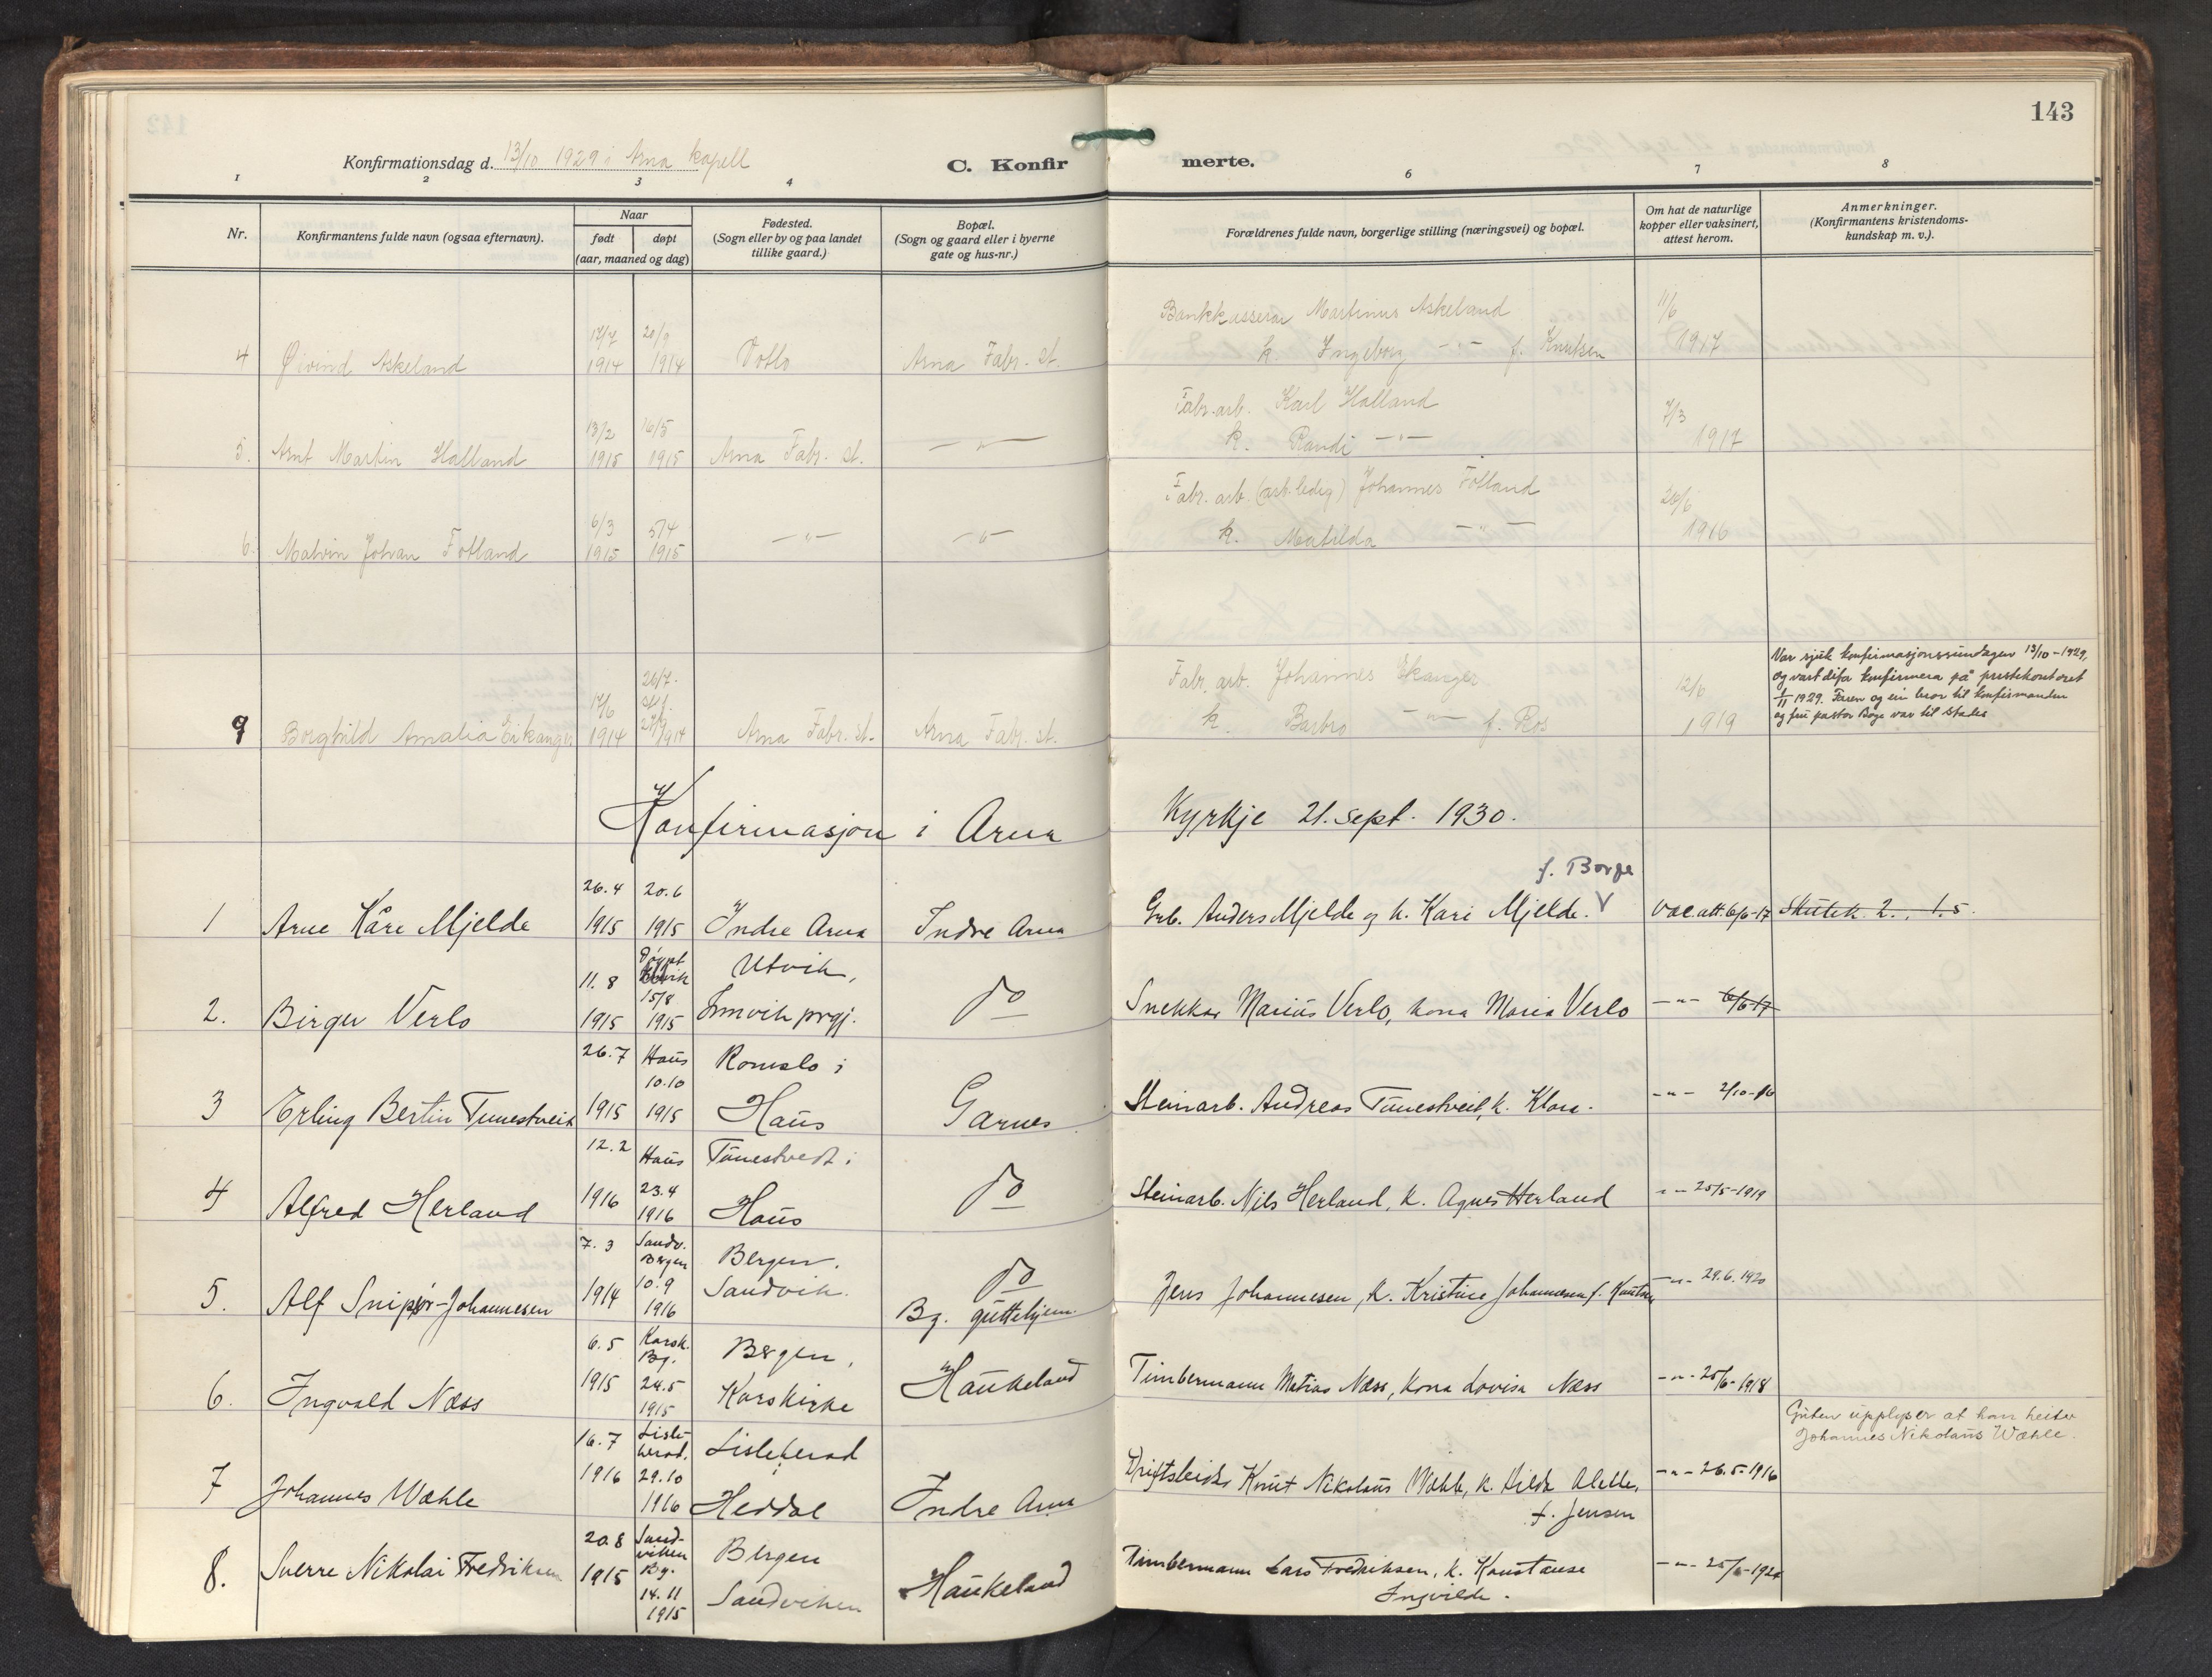 143
Konfirmationsdag d. 13/10 1929 i Arna kapell
C. Konfir
merte.
1 2 3 4 6 7 8
Nr.
Konfirmantens fulde navn (ogsaa efternavn).
Naar
født døpt
(aar, maaned og dag)
Fødested.
(Sogn eller by og paa landet
tillike gaard.)
Bopæl.
(Sogn og gaard eller i byerne
gate og hus-nr.)
Forældrenes fulde navn, borgerlige stilling (næringsvei) og bopæl.
Om hat de naturlige
kopper eller vaksinert,
attest herom.
Anmerkninger.
(Konfirmantens kristendoms-
kundskap m. v.).
Bankkasserar Martinus Askeland 11/6
4 Øivind Askeland 1914 1914 Arna Fabr. st. k. Ingeborg -"- f. Knutsen 1917
13/2 16/5 Fabr. arb. Karl Halland 7/3
5. Arnt Martin Halland 1915 1915 Arna Fabr. st. -"- k. Randi -"- 1917
6/3 5/4 Fabr. arb. (arb. ledig) Johannes Fotland
6. Malvin Johan Fotland 1915 1915 -"- -"- k. Matilda -"- 1916
Var sjuk konfirmasjonssundagen 13/10-1929,
og vart difor konfirmera på prestekontoret
1/11 1929. Faren og ein bror til konfirmanden
og fru pastor Bøge var til stades
26/7. Fabr. arb. Johannes Ekanger 12/6
9 Borghild Amalia Eikanger 1914 1914 Arna Fabr. st. Arna Fabr. st. k. Barbro -"- f. Ros 1919
Konfirmasjon i Arna Kyrkje 21. sept. 1930.
f. Borge
26.4 20.6
1 Arne Kåre Mjelde 1915 1915 Indre Arna Indre Arna Grb. Anders Mjelde og k. Kari Mjelde. V Vac. att. 6/6-17 Skutek. 2. 1.5.
11.8 15/8 Utvik,
2. Birger Verlo 1915 1915 Innvik prgj. do Snekkar Marius Verlo, kona Maria Verlo -"- 6/6-17
26.7 Haus 10.10 Romslo i
3 Erling Bertin Tunestveit 1915 1915 Haus Garnes Steinarb. Andreas Tunestveit, k. Klara. -"- 2/10-16
12.2 Haus Tunestvedt i
4 Alfred Herland 1916 23.4 1916 Haus do Steinarb. Nils Herland, k. Agnes Herland -"- 25/5-1919
7.3 Sandv. Bergen Bergen.
5. Alf Snipør-Johannesen 1914 10.9 1916 Sandvik. do Bg. guttehjem. Jens Johannesen, k. Kristine Johannesen f. Knutsen -"- 29.6.1920
6.5 Korsk. Bg. Bergen,
6. Ingvald Næss 1915 24.5 1915 Korskirke Haukeland Timbermann Matias Næss, kona Lovisa Næss -"- 25/6-1918
Guten upplyser at han heiter
Johannes Nikolaus Wæhle.
16.7 Lisleherad. Lisleherad
7 Johannes Wæhle 1916 29.10 1916 Heddal Indre Arna Driftsleidar Knut Nikolaus Wæhle, k. Hilda Alette, -"- 26.5.1916
f. Jensen
20.8 Sandviken Bg. Bergen
8. Sverre Nikolai Fredriksen 1915 14.11 1915 Sandviken Haukeland Timbermann Lars Fredriksen, k. Konstanse
Ingvilde.